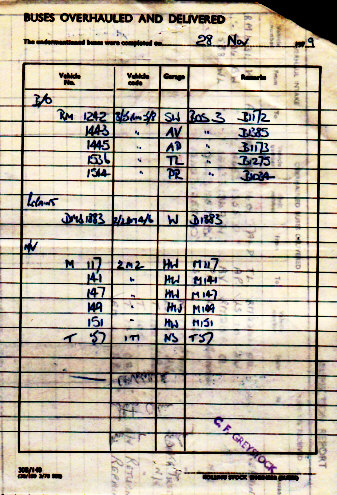 BUSES OVERHAULED AND DELIVERED
The undermentioned buses were completed on 28 Nov 1979
Vehicle No. Vehicle code Garage Remarks
B/O
RM 1242 SW BOS 3 B1172
1443 " AV " B1385
1445 " AP " B1173
1536 " TL " B1275
1564 " PR "
DMS1883 W D1883
M 117 2M2 HW M117
141 " HW M141
147 " HW M147
149 " HW M149
151 " HW M151
T 57 1T1 NS T57
C. F. GREYSTOCK